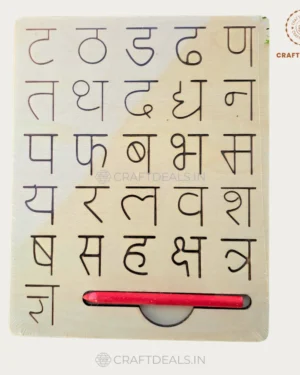 ट ठ ड ढ ण
त थ द ध न
प फ ब भ म
य र ल व श
ष स ह क्ष त्र
CRAFTDEALS.IN
CRAFT
CRAFTDEALS.IN